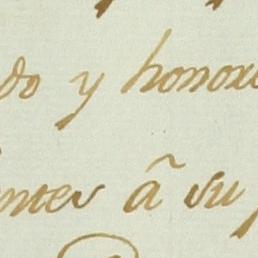 do y honor
ntes â su